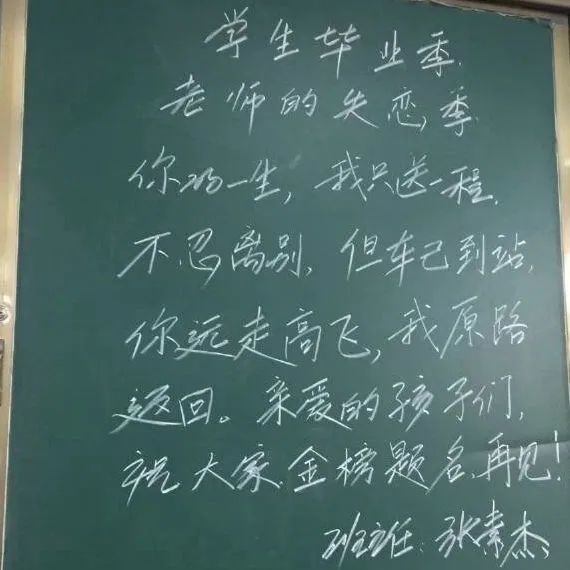 学生毕业季,
老师的失恋季
你的一生,我只送一程,
不忍离别,但车已到站,
你远走高飞,我原路
返回。亲爱的孩子们,
祝大家金榜题名,再见!
班主任:张素杰